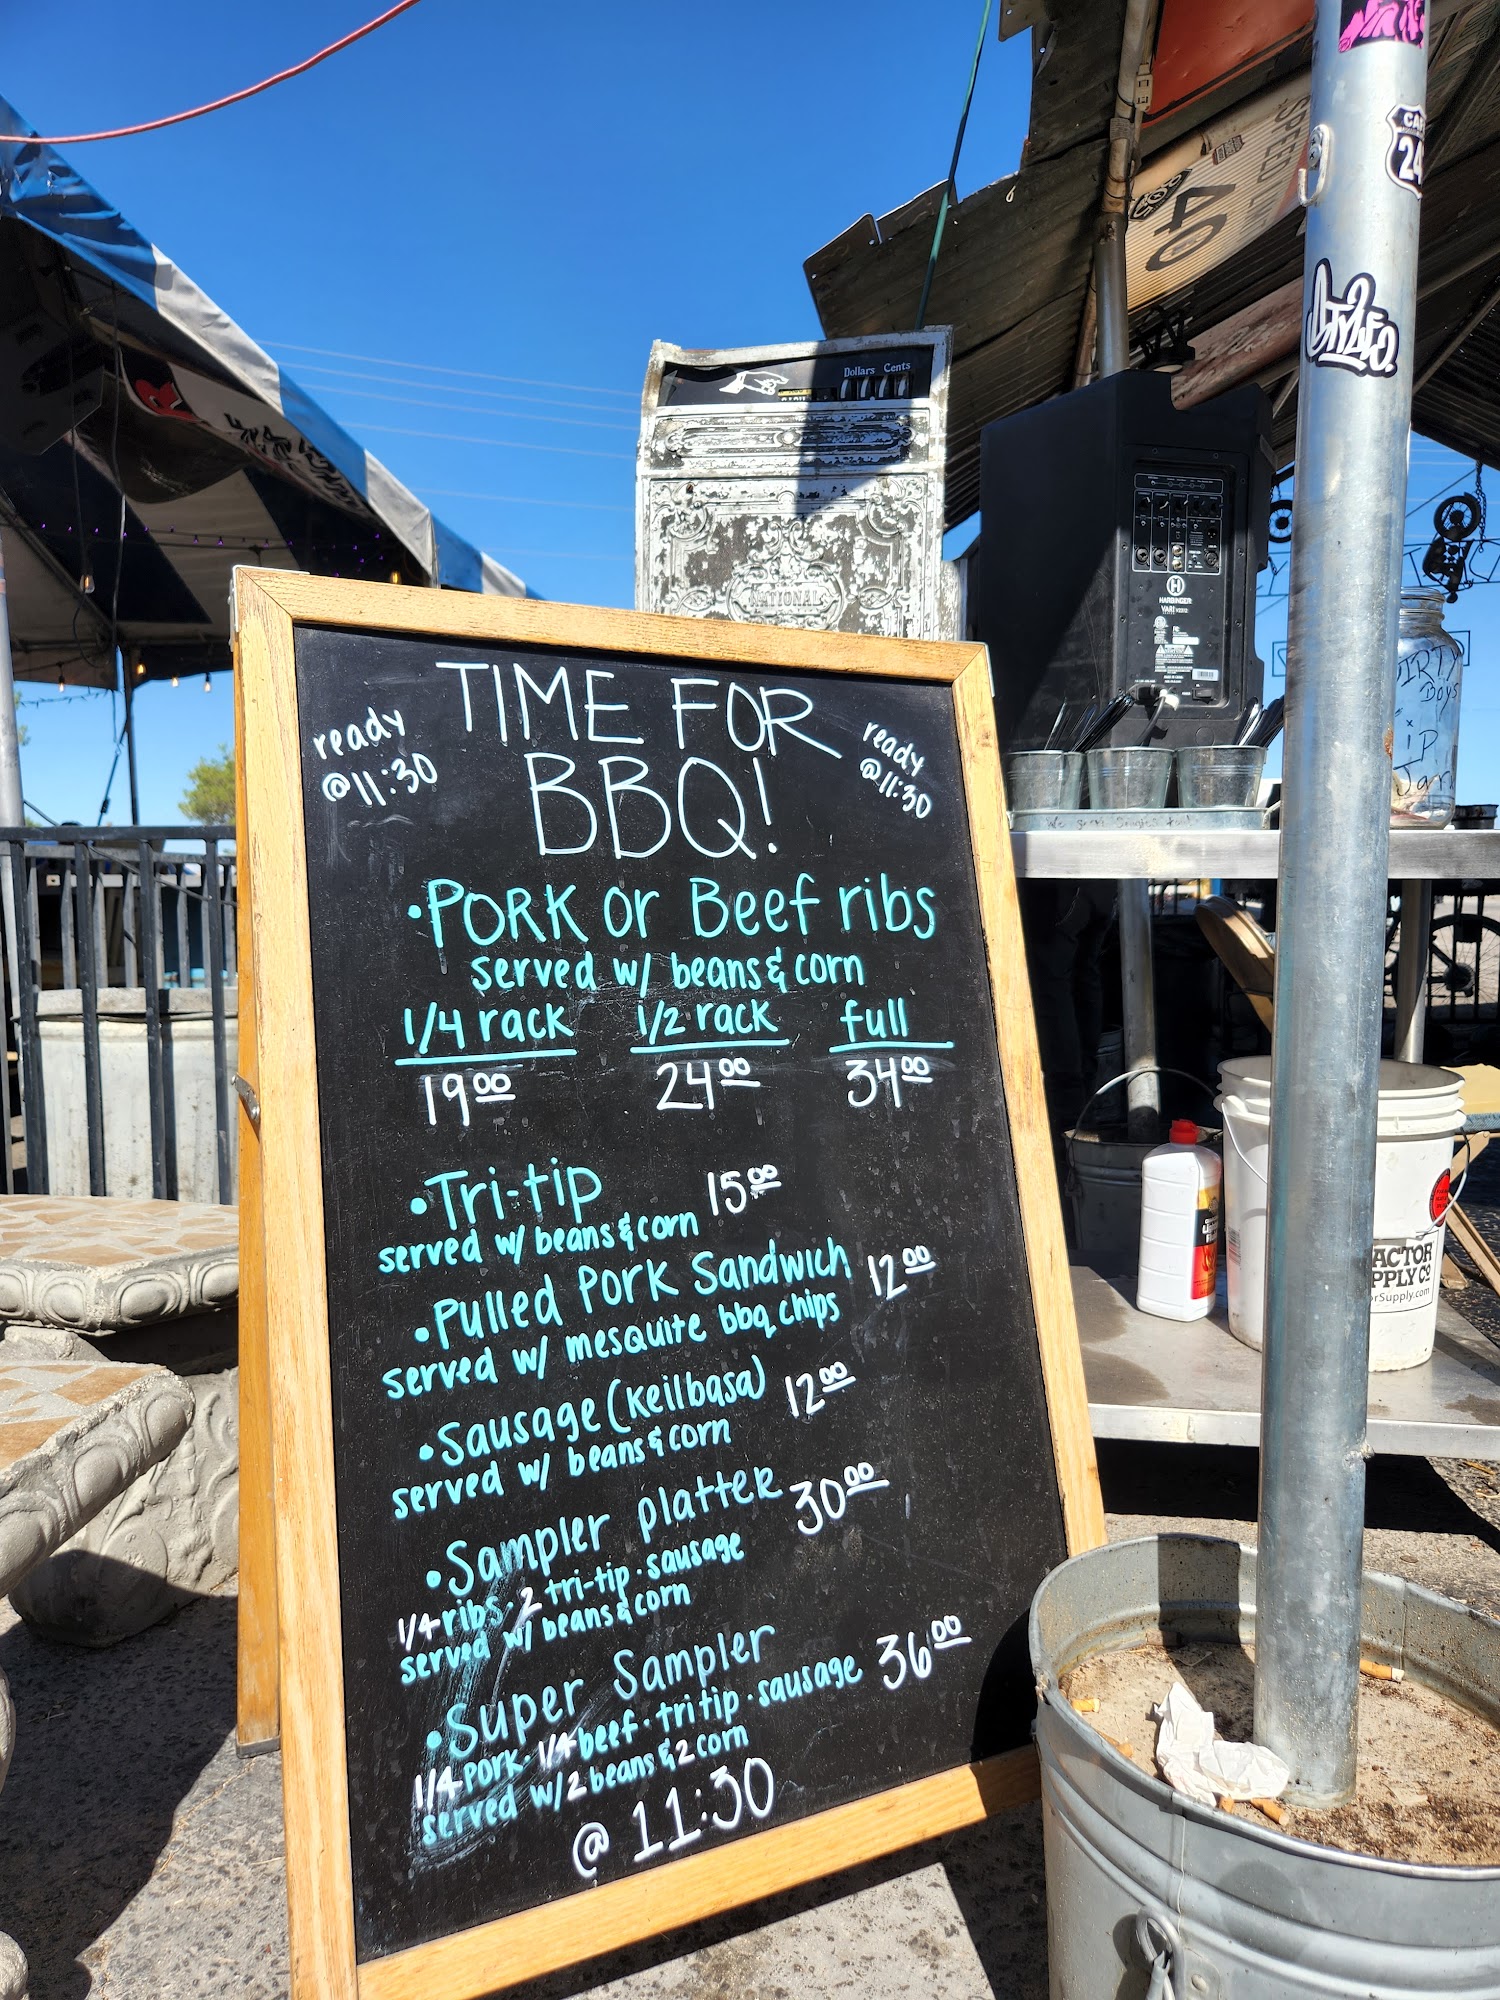 TIME FOR
BBQ!
ready
@11:30
ready
@11:30
•PORK or Beef ribs
served w/ beans & corn
1/4 rack 1/2 rack full
19.00 24.00 34.00
•Tri-tip 15.00
served w/ beans & corn
•Pulled Pork Sandwich 12.00
served w/ mesquite bbq chips
•Sausage (Keilbasa) 12.00
served w/ beans & corn
•Sampler Platter 30.00
1/4 ribs · 2 tri-tip · sausage
served w/ beans & corn
•Super Sampler 36.00
1/4 pork · 1/4 beef · tri tip · sausage
served w/ 2 beans & 2 corn
@ 11:30
Dollars Cents
NATIONAL
SPEED LIMIT
40
24
HARBINGER
VARI
DIRTY
Boys
TIP
Jar
ACTOR
PPLY CO
orSupply.com